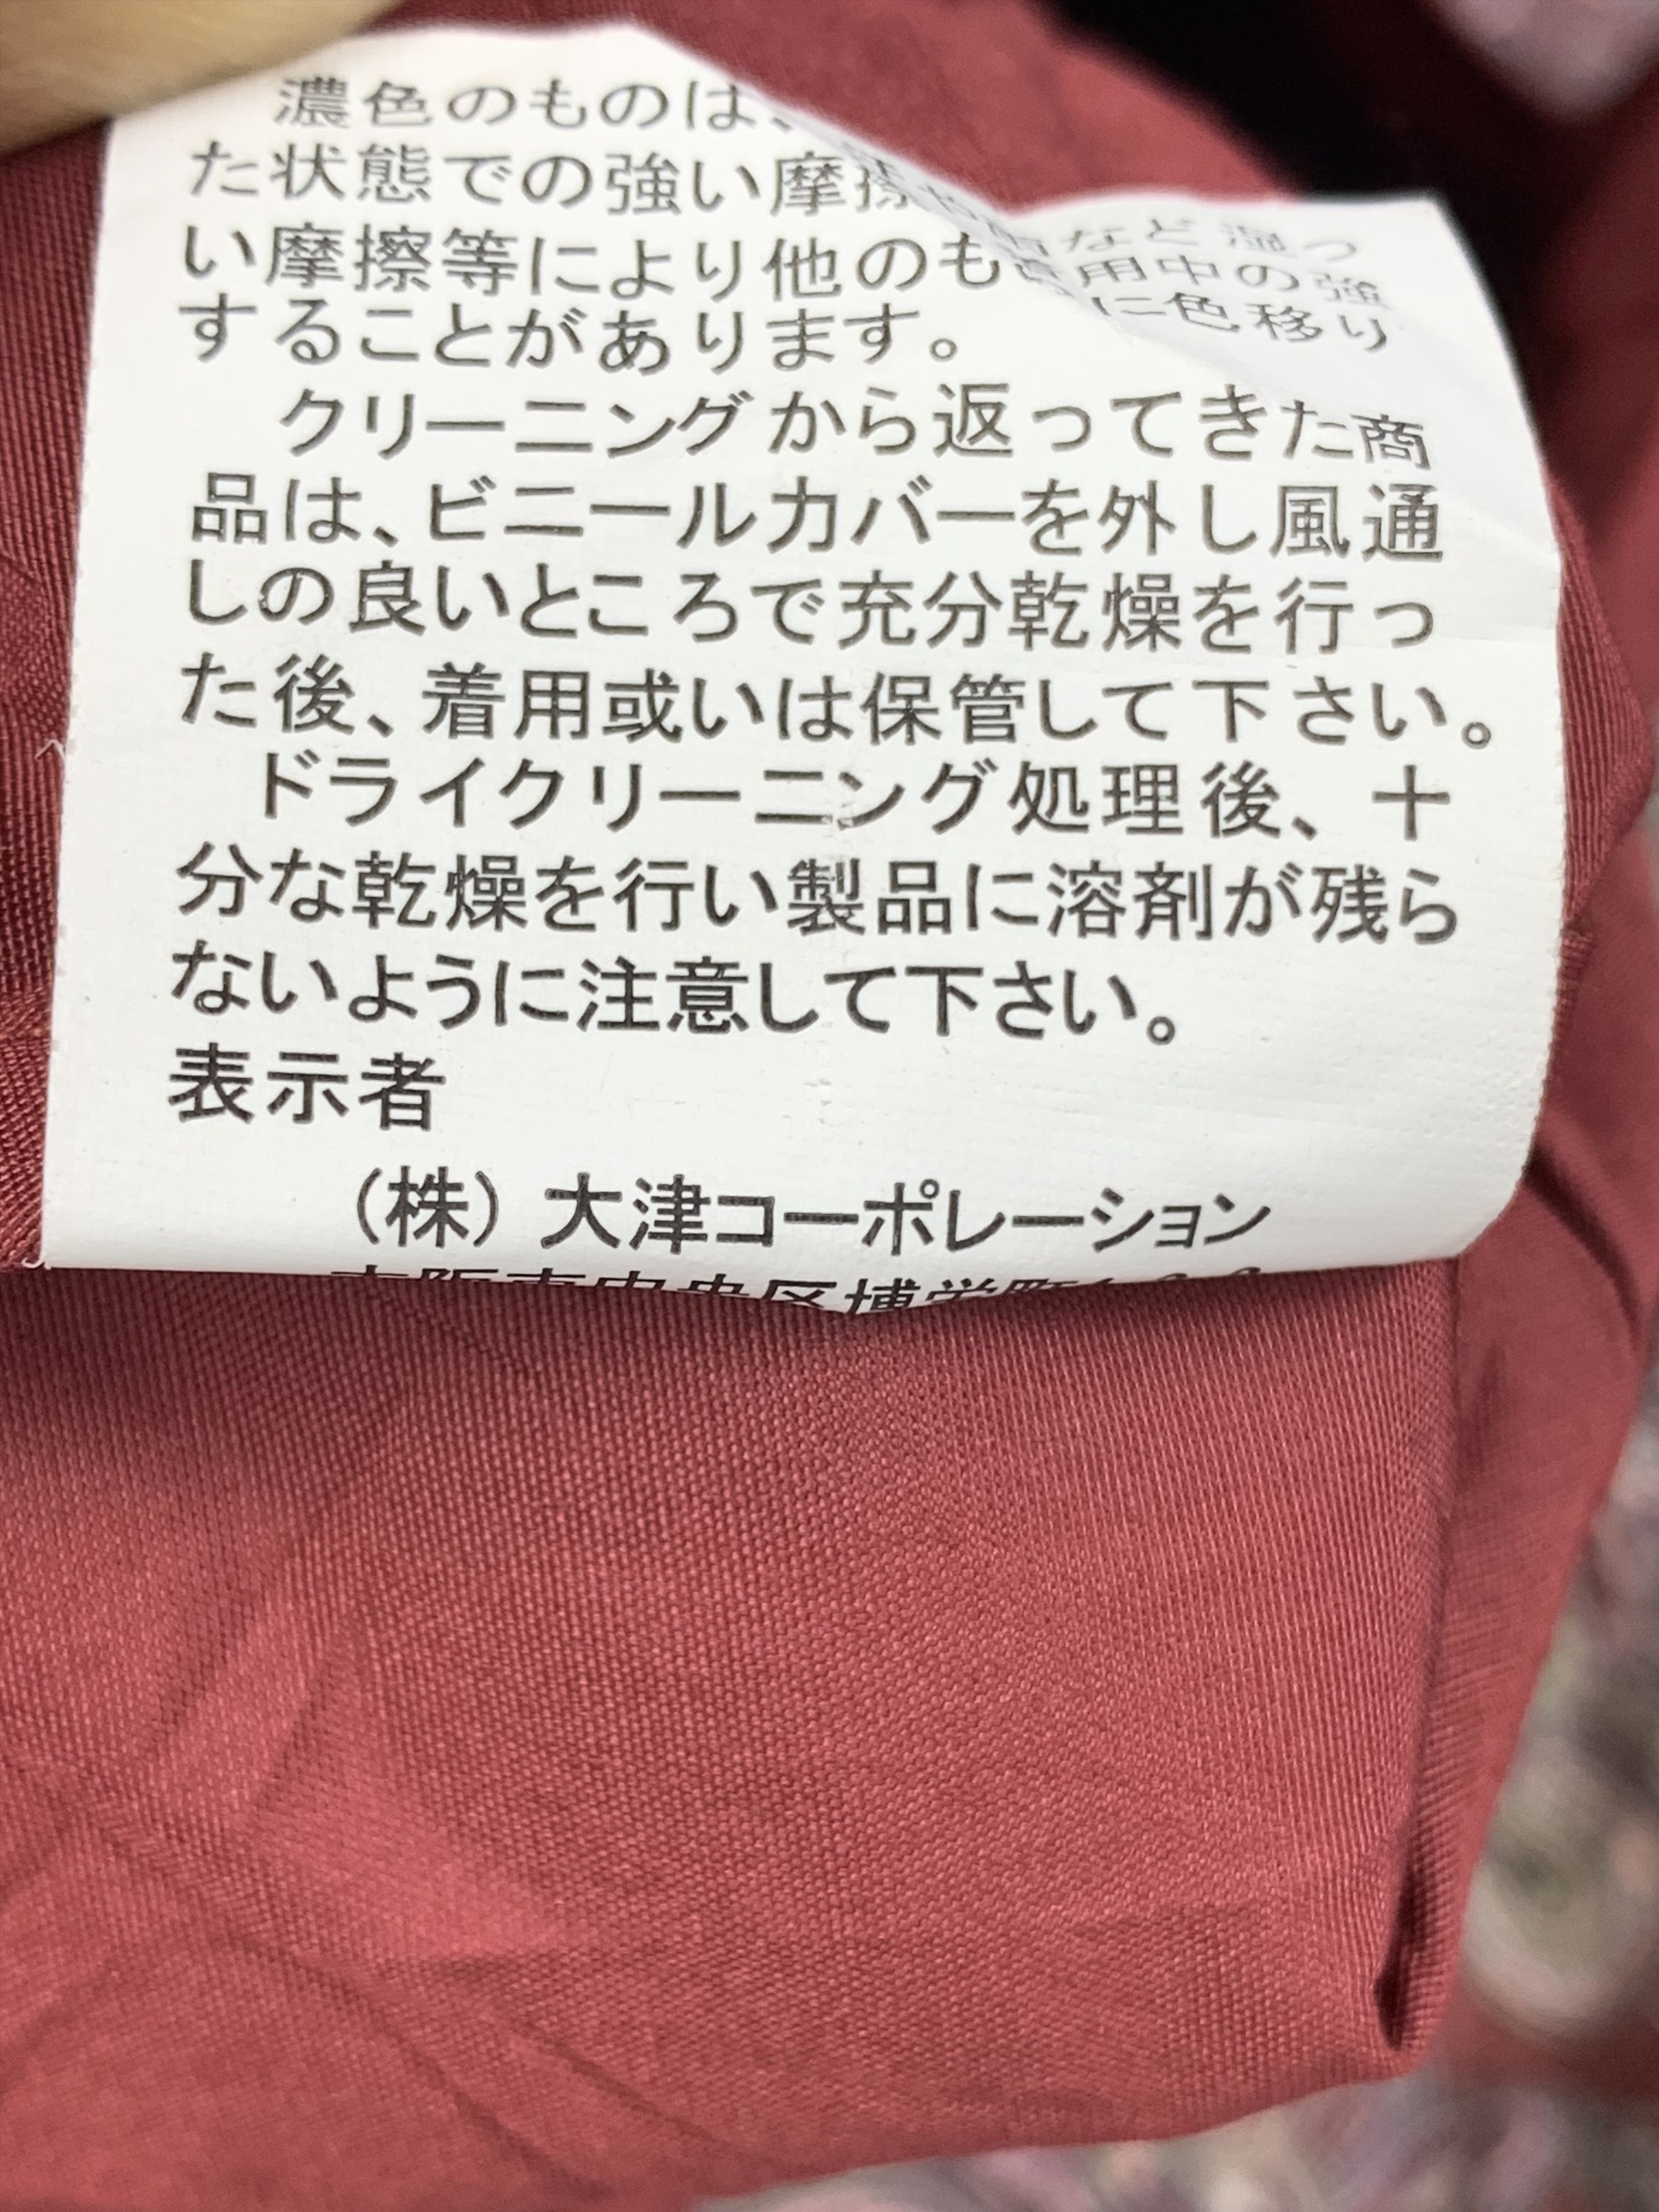 濃色のものは、汗や雨など湿っ
た状態での強い摩擦 着用中の強
い摩擦等により他のものに色移り
することがあります。
クリーニングから返ってきた商
品は、ビニールカバーを外し風通
しの良いところで充分乾燥を行っ
た後、着用或いは保管して下さい。
ドライクリーニング処理後、十
分な乾燥を行い製品に溶剤が残ら
ないように注意して下さい。
表示者
(株)大津コーポレーション